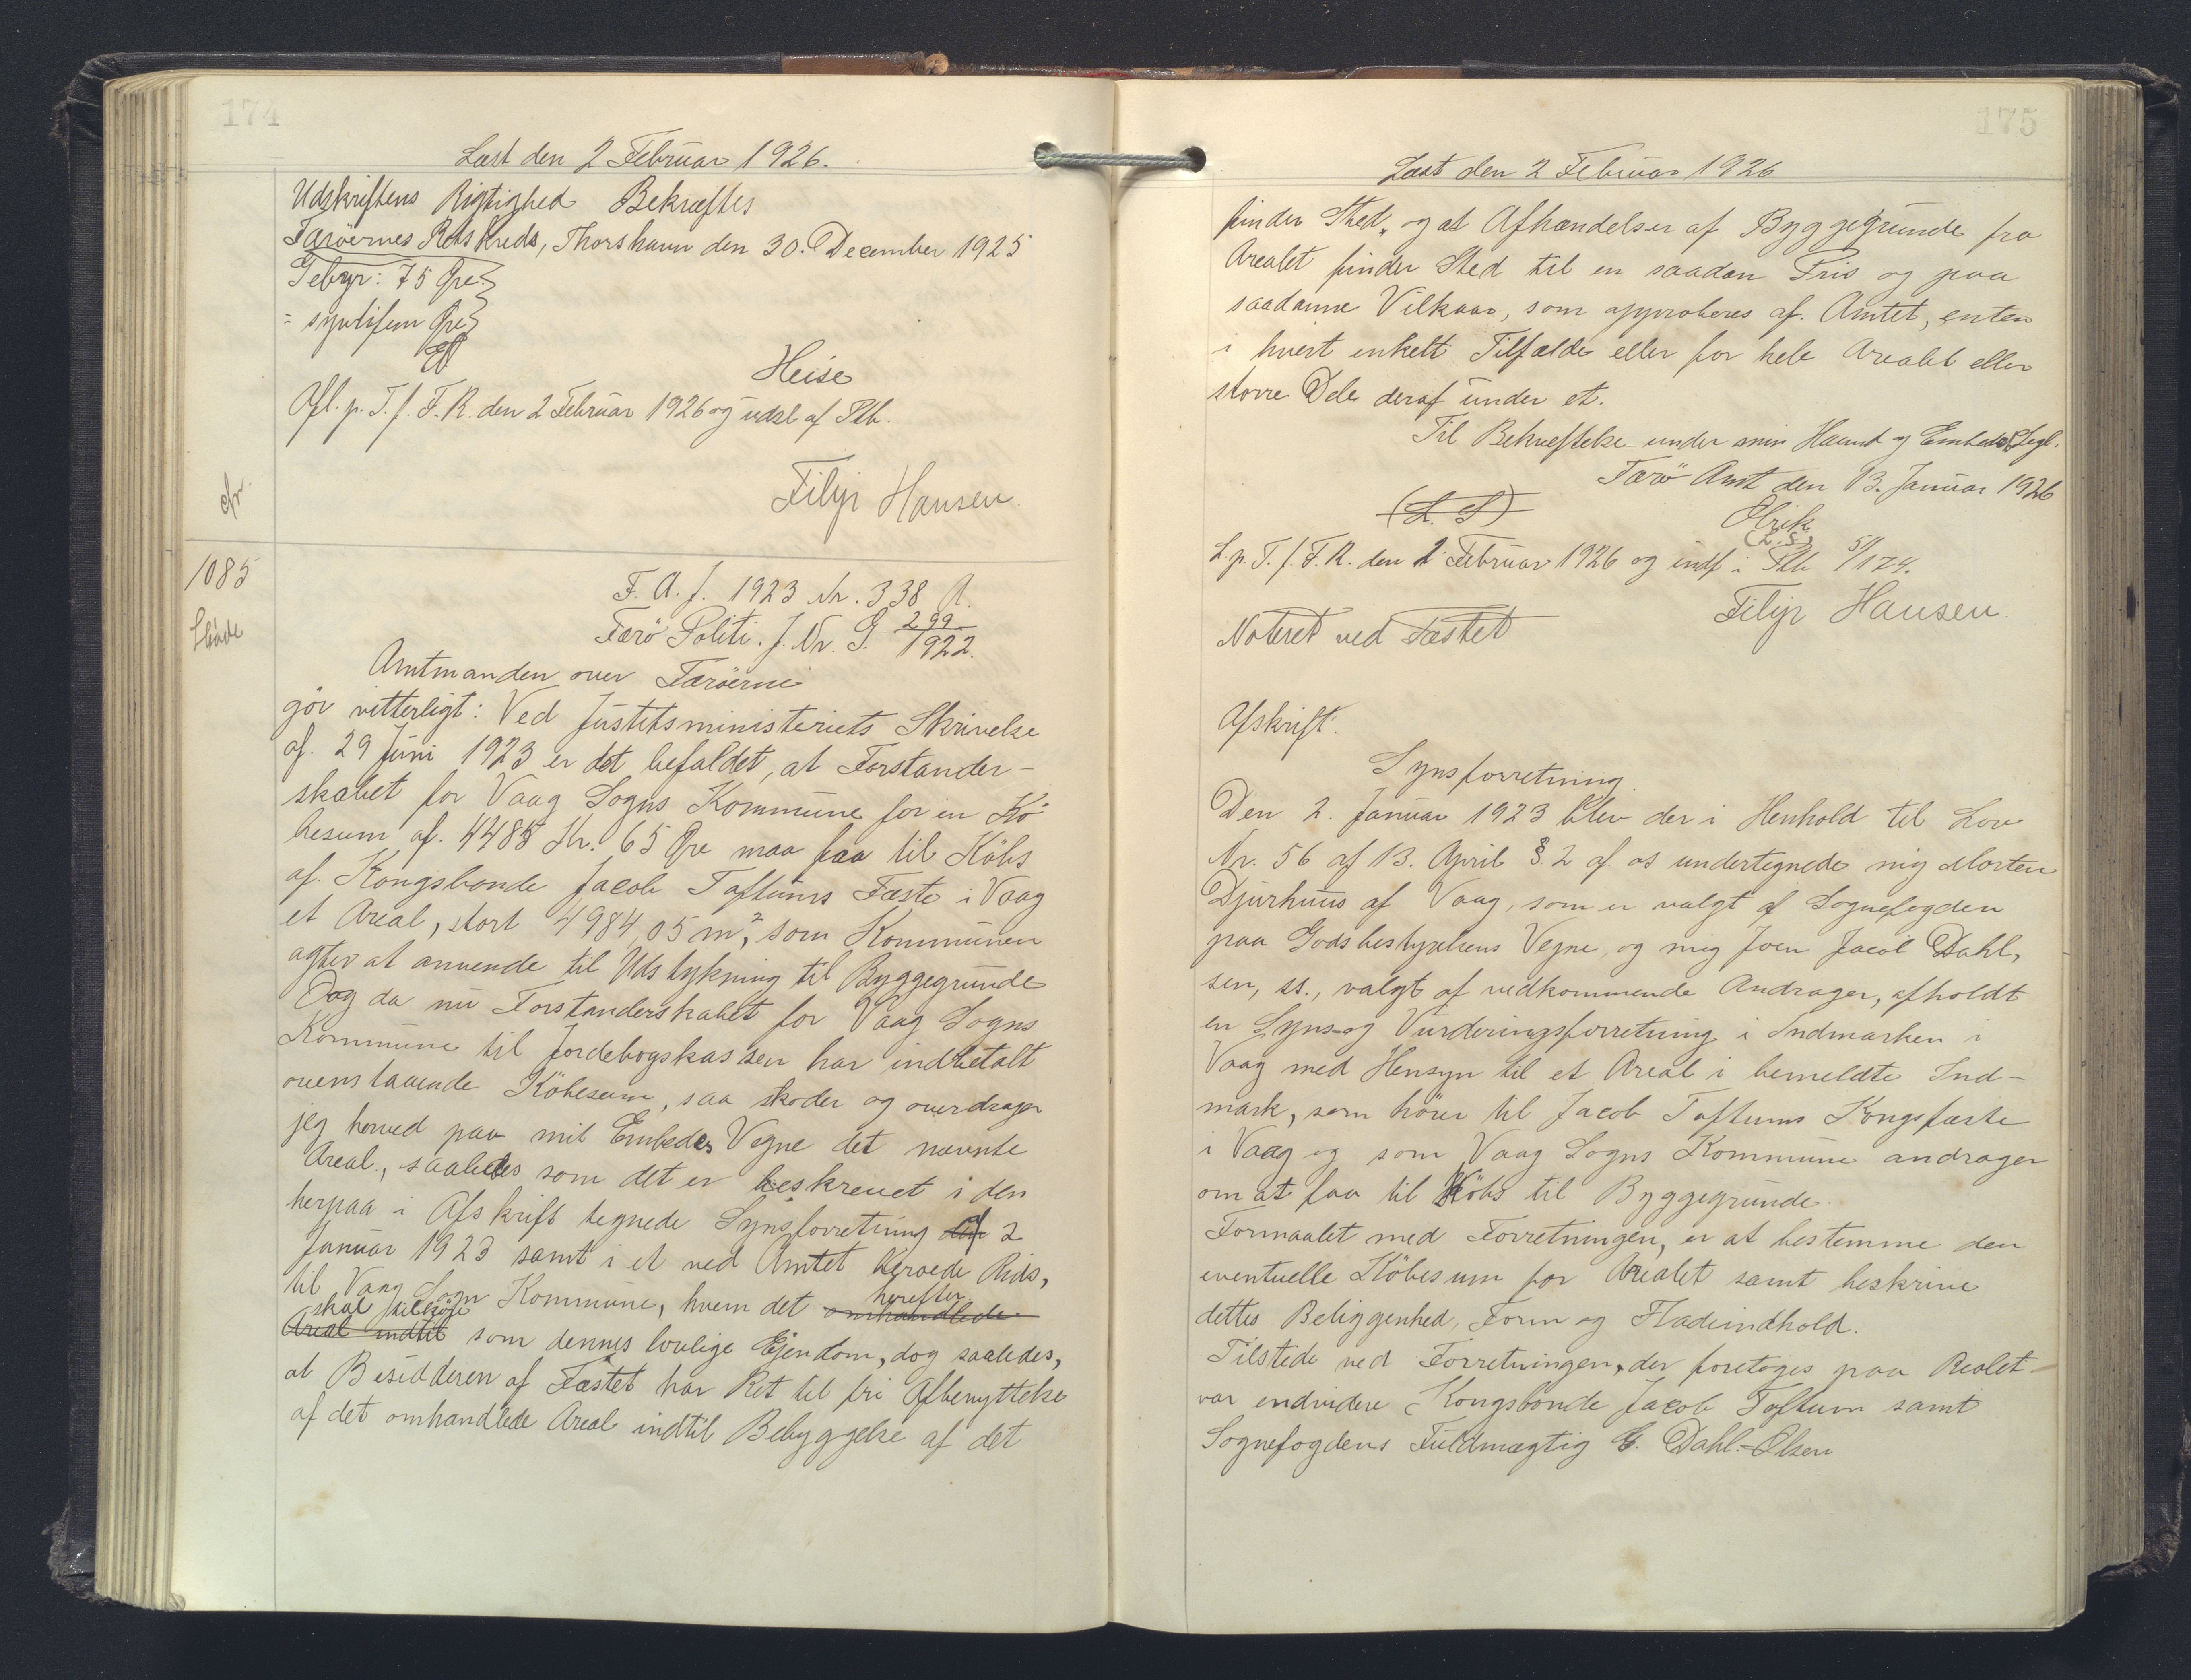 174
Læst den 2 Februar 1926.
Udskriftens Rigtighed Bekræftes
Færöernes Retskreds, Thorshavn den 30. December 1925
Gebyr: 75 Øre
= syvtifem Øre
Heise
Afl. p. T. f. F. R. den 2 Februar 1926 og udsl af Ptb.
Filip Hansen
cfr.
1085
Sköde
F. A. J. 1923 Nr. 338 A.
Færö Politi. J. Nr. G 299/1922.
Amtmanden over Færöerne
gör vitterligt: Ved Justitsministeriets Skrivelse
af. 29 Juni 1923 er det befaldet, at Forstander-
skabet for Vaag Sogns Kommune for en Kö
besum af. 4485 Kr. 65 Øre maa faa til Köbs
af. Kongsbonde Jacob Toftums Fæste i Vaag
et Areal, stort 4984,05 m², som Kommunen
agter at anvende til Udstykning til Byggegrunde
Og da nu Forstanderskabet for Vaag Sogns
Kommune til Jordebogskassen har indbetalt
ovenstaaende Köbesum, saa sköder og overdrager
jeg herved paa mit Embedes Vegne det nævnte
Areal, saaledes som det er beskrevet i den
herpaa i Afskrift tegnede Synsforretning af 2
Januar 1923 samt i et ved Amtet beroede Rids,
til Vaag Sogn Kommune, hvem det omhandlede herefter
Areal indtil skal tilhöre som dennes lovlige Ejendom, dog saaledes,
at Besidderen af Fæstet har Ret til fri Afbenyttelse
af det omhandlede Areal indtil Bebyggelse af det
175
Læst den 2 Februar 1926
finder Sted, og at Afhændelser af Byggegrunde fra
Arealet finder Sted til en saadan Pris og paa
saadanne Vilkaar, som approberes af. Amtet, enten
i hvert enkelt Tilfælde eller for hele Arealet eller
större Dele deraf under et.
Til Bekræftelse under min Haand og Embeds Segl.
Færö Amt den 13. Januar 1926
(L. S) Elrik
(L. S.)
L. p. T. f. F. R. den 2 Februar 1926 og indf i Ptb 5/174.
Filip Hansen.
Noteret ved Fæstet
Afskrift.
Synsforretning.
Den 2. Januar 1923 blev der i Henhold til Lov
Nr. 56 af 13. April § 2 af. os undertegnede mig Morten
Djurhuus af Vaag, som er valgt af Sognefogden
paa Godsbestyrelsens Vegne, og mig Joen Jacob Dahl,
sen, ss., valgt af vedkommende Andrager, afholdt
en Syns og Vurderingsforretning i Indmarken i
Vaag med Hensyn til et Areal i bemeldte Ind-
mark, som hörer til Jacob Toftums Kongsfæste
i Vaag og som Vaag Sogns Kommune andrager
om at faa til Köbs til Byggegrunde.
Formaalet med Forretningen, er at bestemme den
eventuelle Köbesum for Arealet samt beskrive
dettes Beliggenhed, Form og Fladeindhold.
Tilstede ved Forretningen, der foretoges paa Realet
var endvidere Kongsbonde Jacob Toftum samt
Sognefogdens Fuldmægtig E. Dahl-Olsen